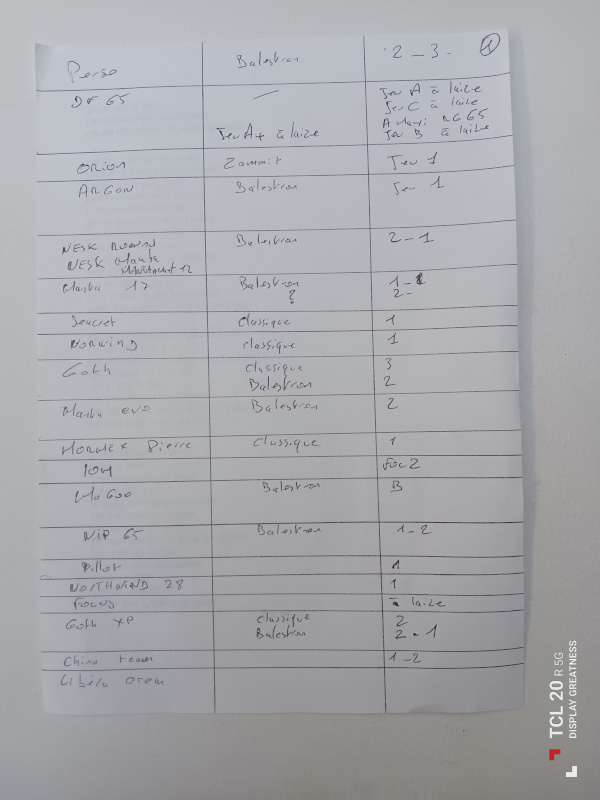 Perso Balestron 2 - 3 - 1
DF 65 — Jeu A à laize
Jeu C à laize
A RG 65
Jeu A+ à laize Jeu B à laize
ORION Jeu 1
ARGON Balestron Jeu 1
NESK Balestron 2 - 1
NESK
Manta 17 Balestron 1 -
? 2 -
Seacret Classique 1
NORWING Classique 1
Goth Classique 3
Balestron 2
Manta evo Balestron 2
Pierre Classique 1
IOM Foc 2
Balestron B
NIP 65 Balestron 1 - 2
Pillot 1
NORTHWIND 28 1
FOCUS à laize
Goth XP Classique 2
Balestron 2 - 1
China team 1 - 2
TCL 20 R 5G
DISPLAY GREATNESS